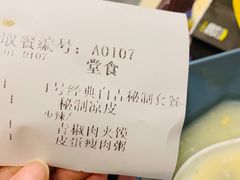 取餐编号: A0107
01 0107
堂食
1号经典自古秘制套餐
秘制凉皮
少辣/
青椒肉夹馍
皮蛋瘦肉粥